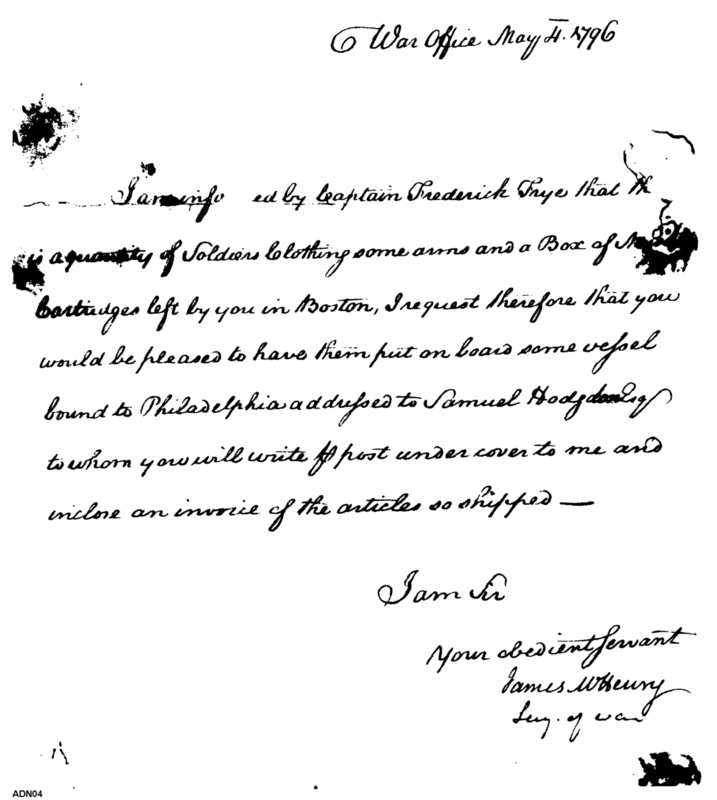 War Office May 4. 1796
I am info ed by Captain Frederick Frye that th
is a quantity of Soldiers Clothing some arms and a Box of
Cartridges left by you in Boston, I request therefore that you
would be pleased to have them put on board some vessel
bound to Philadelphia addressed to Samuel Hodgdon Esq
to whom you will write post under cover to me and
inclose an invoice of the articles so shipped —
I am Sir
Your obedient Servant
James McHenry
Secy. of war
ADN04